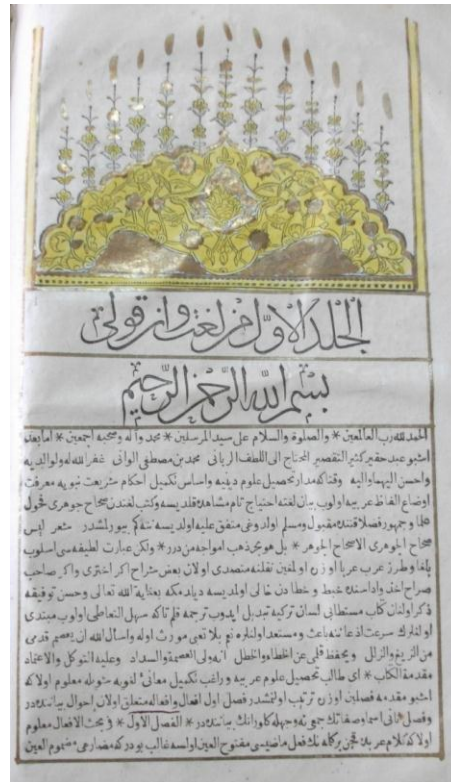 الجلد الاول من لغت وانقولى
بسم الله الرحمن الرحيم
الحمد لله رب العالمين * والصلوة والسلام على سيد المرسلين * محمد وآله وصحبه اجمعين * اما بعد
اشبو عبد حقير كثير التقصير المحتاج الى اللطف الربانى محمد بن مصطفى الوانى غفر الله له ولوالديه
واحسن اليهما واليه وقتاكه مدار تحصيل علوم دينيه واساس تكميل احكام شريعت نبويه معرفت
اوضاع الفاظ عربيه اولوب بيان لغته احتياج تام مشاهده قلديسه وكتب لغتدن صحاح جوهرى فحول
علما وجمهور فضلا قتنده مقبول ومسلم اولدوغى متفق عليه اولديسه نته كم بيورلشدر شعر ليس
صحاح الجوهرى الا صحاح الجوهر * بل هو بحر ذهب امواجه من درر * ولكن عبارت لطيفه سى اسلوب
بلغا وطرز عرب عربا اوزره اولمغين نقلنه متصدى اولان بعض شراح اكر اخترى واكر صاحب
صراح اخذ واداسنده خبط وخطادن خالى اولمديسه ديلدمكه بعناية الله تعالى وحسن توفيقه
ذكر اولنان كتاب مستطابى لسان تركيه تبديل ايدوب ترجمه قلم تاكه سهل التعاطى اولوب مبتدى
اولنلرك سرعت اذعاننه باعث ومستعد اولنلره نم بلا تعبى مورث اوله واسأل الله ان يعصم قدمى
من الزيغ والزلل ويحفظ قلمى عن الخطاء والخطل انه ولى العصمة والسداد وعليه التوكل والاعتماد
مقدمة الكتاب * اى طالب تحصيل علوم عربيه وراغب تكميل معانئ لغويه مثوبله معلوم اولاكه
اشبو مقدمه فصلين اوزره ترتيب اولنمشدر فصل اول افعال وافعاله متعلق اولان احوال بياننده در
وفصل ثانى اسما وصفاتك جموعى نه وجهله كلورانك بياننده در * الفصل الاول * فى بحث الافعال معلوم
اولاكه كلام عربده قچن بر كلمه نك فعل ماضيسى مفتوح العين اولسه غالب بودركه مضارعى مضموم العين